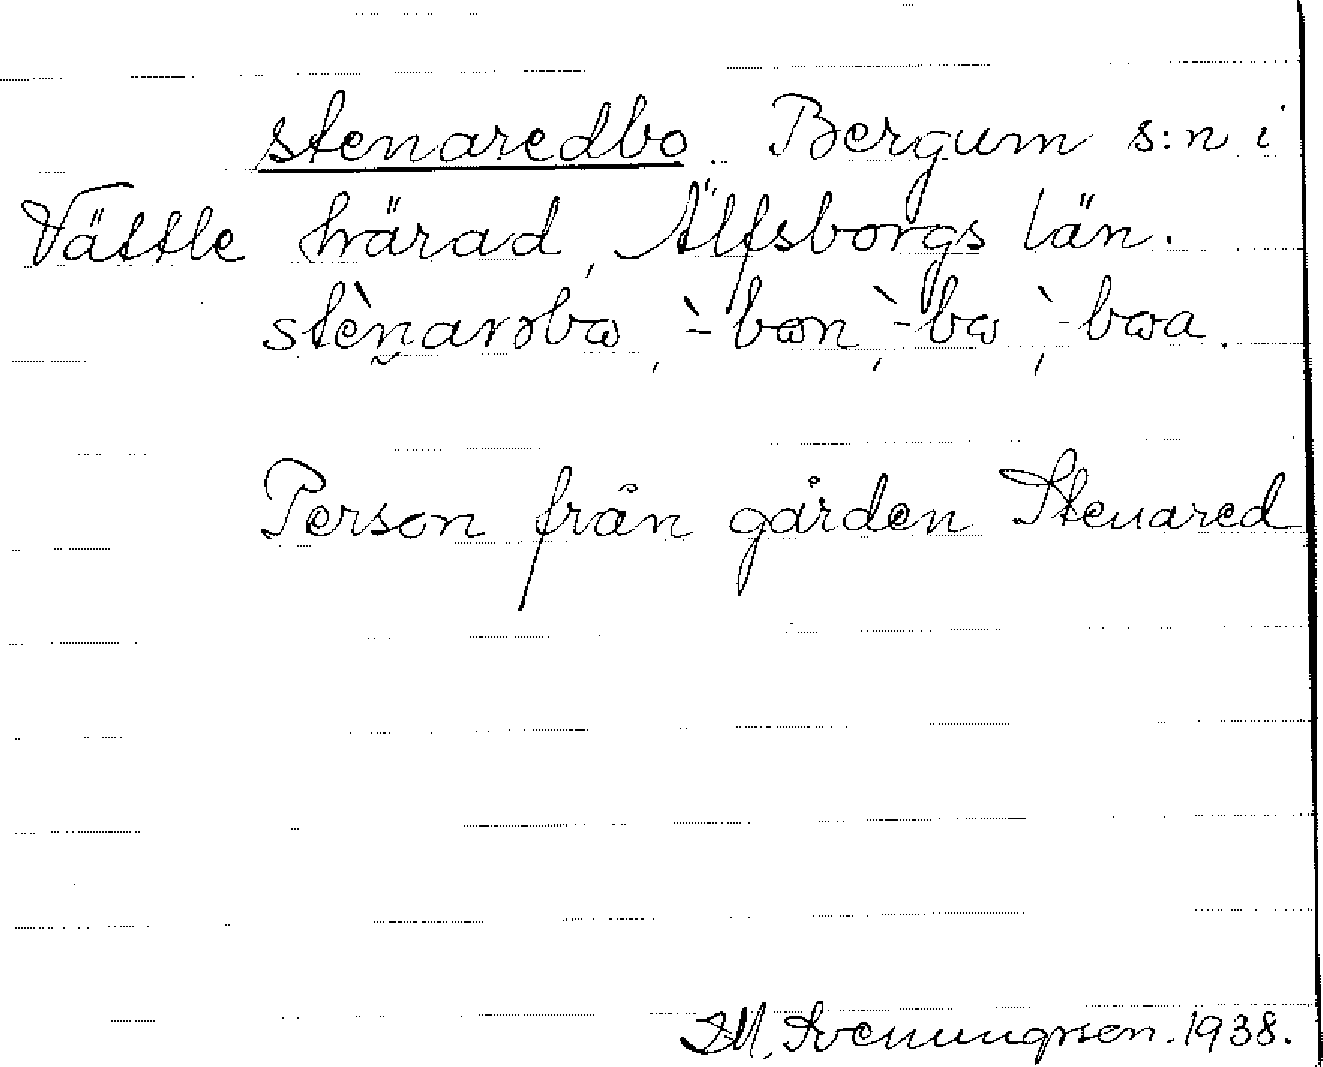 stenaredbo. Bergum s:n i
Vättle härad, Älfsborgs län.
stènarəbω, ̀-bωn, ̀-bω, ̀-bωa.
Person från gården Stenared
1938.